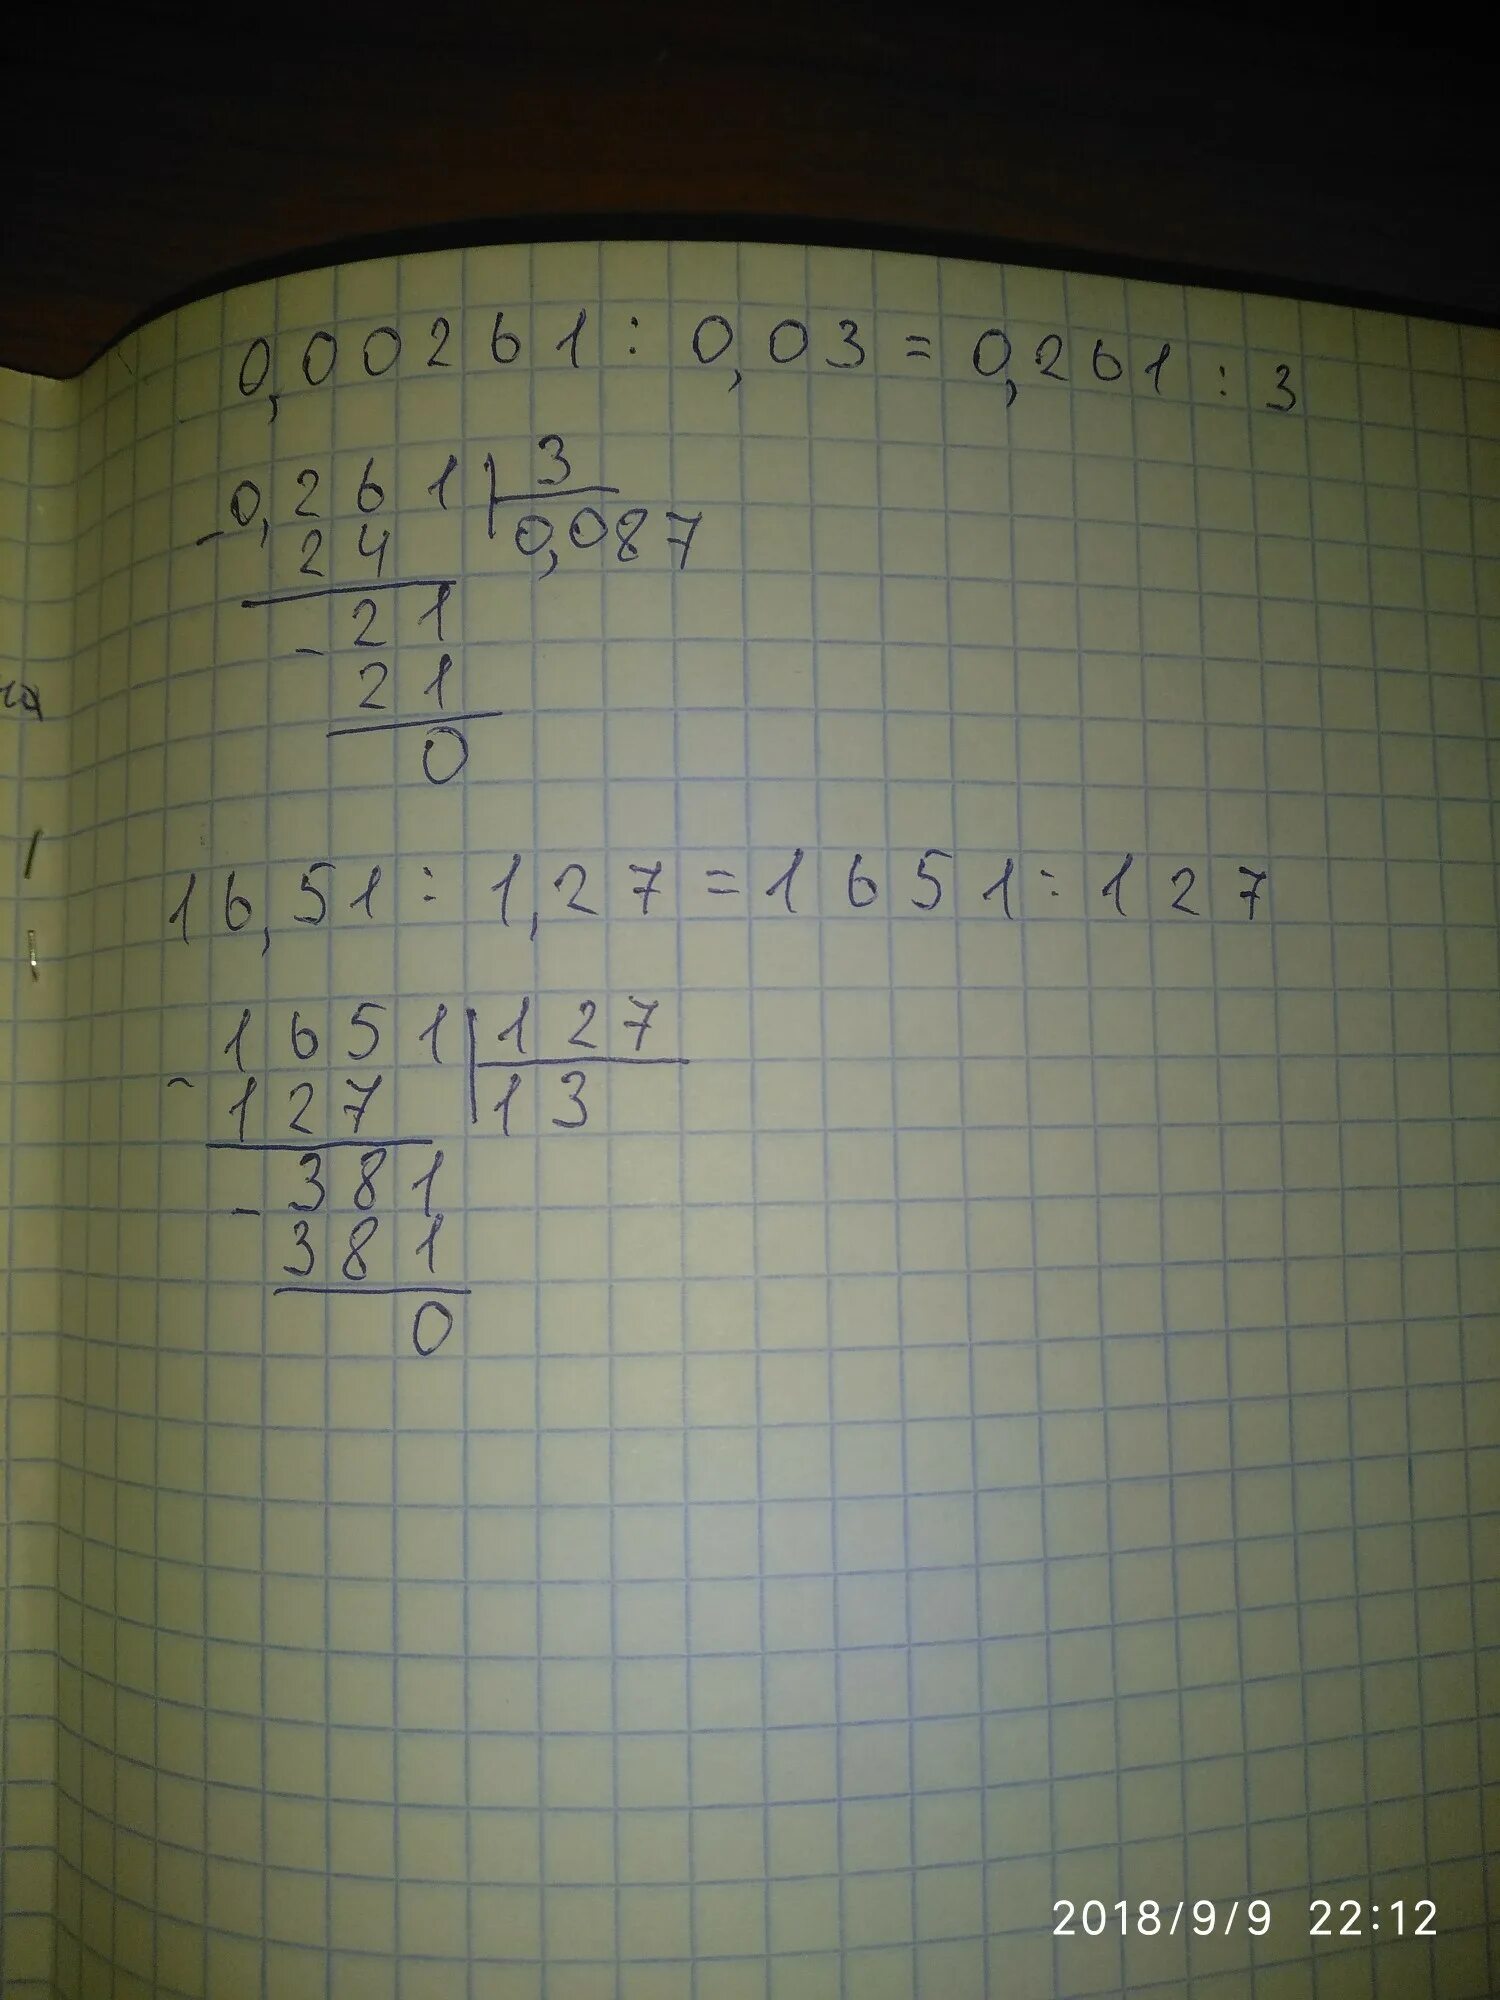 0,00261 : 0,03 = 0,261 : 3
- 0,261 | 3
24 | 0,087
- 21
21
0
16,51 : 1,27 = 1651 : 127
- 1651 | 127
127 | 13
- 381
381
0
2018/9/9 22:12